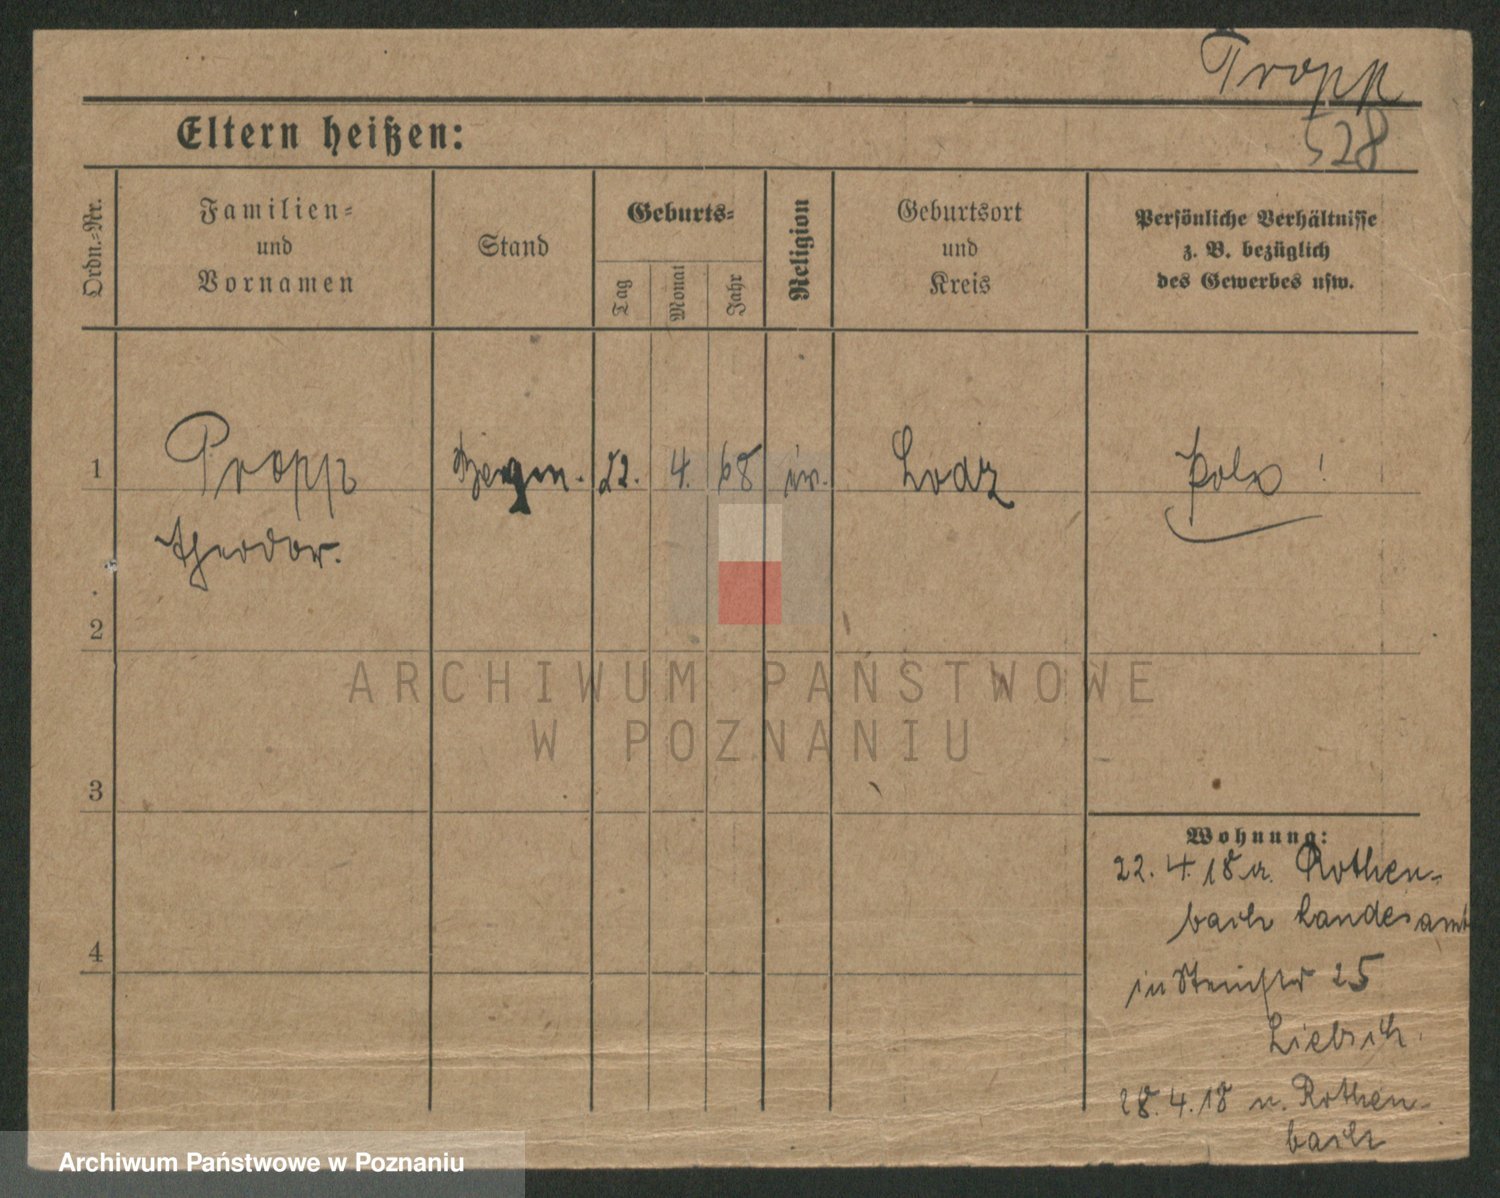 Propp
528
Eltern heißen:
Ordn.-Nr.
Familien-
und
Vornamen
Stand
Geburts-
Tag
Monat
Jahr
Religion
Geburtsort
und
Kreis
Persönliche Verhältnisse
z. B. bezüglich
des Gewerbes usw.
1
Propp
22. 4. 68
Lodz
Pole !
Theodor.
2
ARCHIWUM PAŃSTWOWE
W POZNANIU
3
Wohnung:
22. 4. 18 a. Rothen-
bach Landesamt
in 25
4
28. 4. 18 n. Rothen-
bach
Archiwum Państwowe w Poznaniu